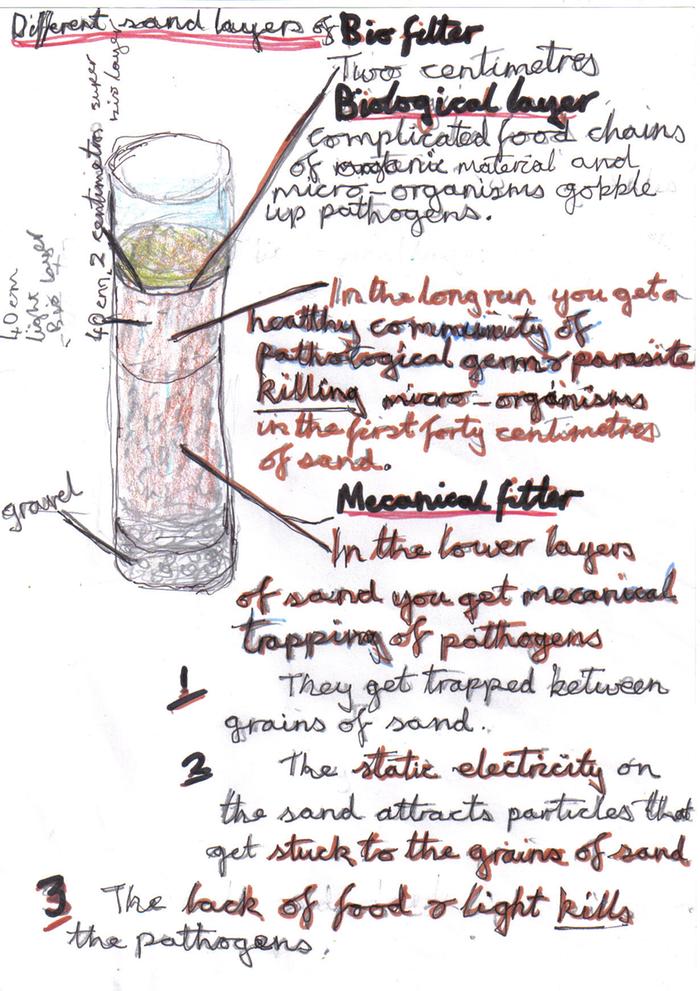 Different sand layers of Bio filter
Two centimetres
Biological layer
complicated food chains
of organic material and
micro-organisms gobple
up pathogens.
2 centimetres super
bio layer
40 cm
light
Bio layer
40 cm
In the long run you get a
healthy community of
pathological germ & parasite
killing micro-organisms
in the first forty centimetres
of sand.
gravel
Mecanical filter
In the lower layers
of sand you get mecanical
trapping of pathogens
1 They get trapped between
grains of sand.
2 The static electricity on
the sand attracts particles that
get stuck to the grains of sand
3 The lack of food & light kills
the pathogens.